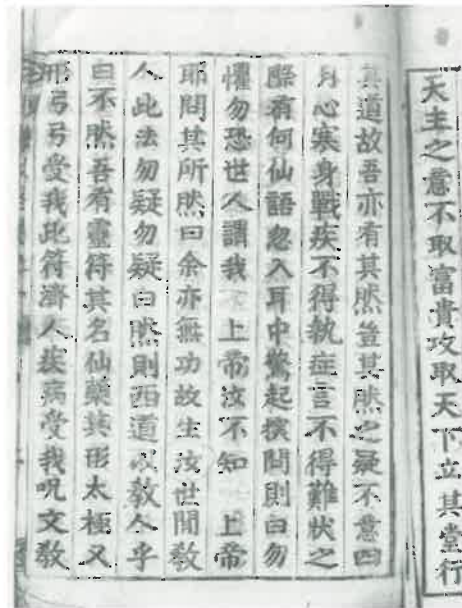 天主之意不取富貴攻取天下立其堂行
其道故吾亦有其然豈其然之疑不意四
月心寒身戰疾不得執症言不得難狀之
際有何仙語忽入耳中驚起探問則曰勿
懼勿恐世人謂我 上帝汝不知 上帝
耶問其所然曰余亦無功故生汝世間教
人此法勿疑勿疑曰然則西道以教人乎
曰不然吾有靈符其名仙藥其形太極又
形弓弓受我此符濟人疾病受我呪文教